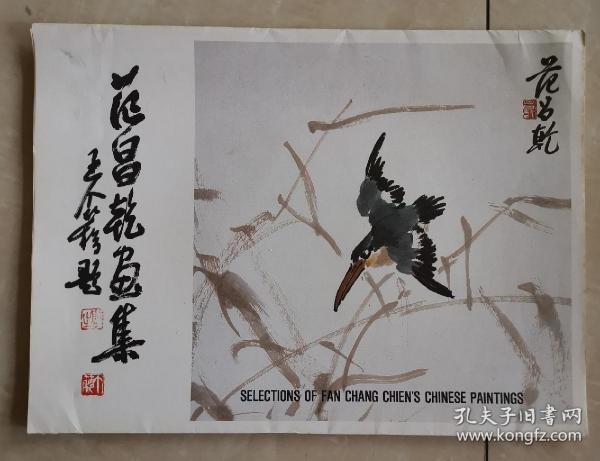 范昌乾画集
王个簃题
范昌乾
SELECTIONS OF FAN CHANG CHIEN'S CHINESE PAINTINGS
孔夫子旧书网
www.kongfz.com